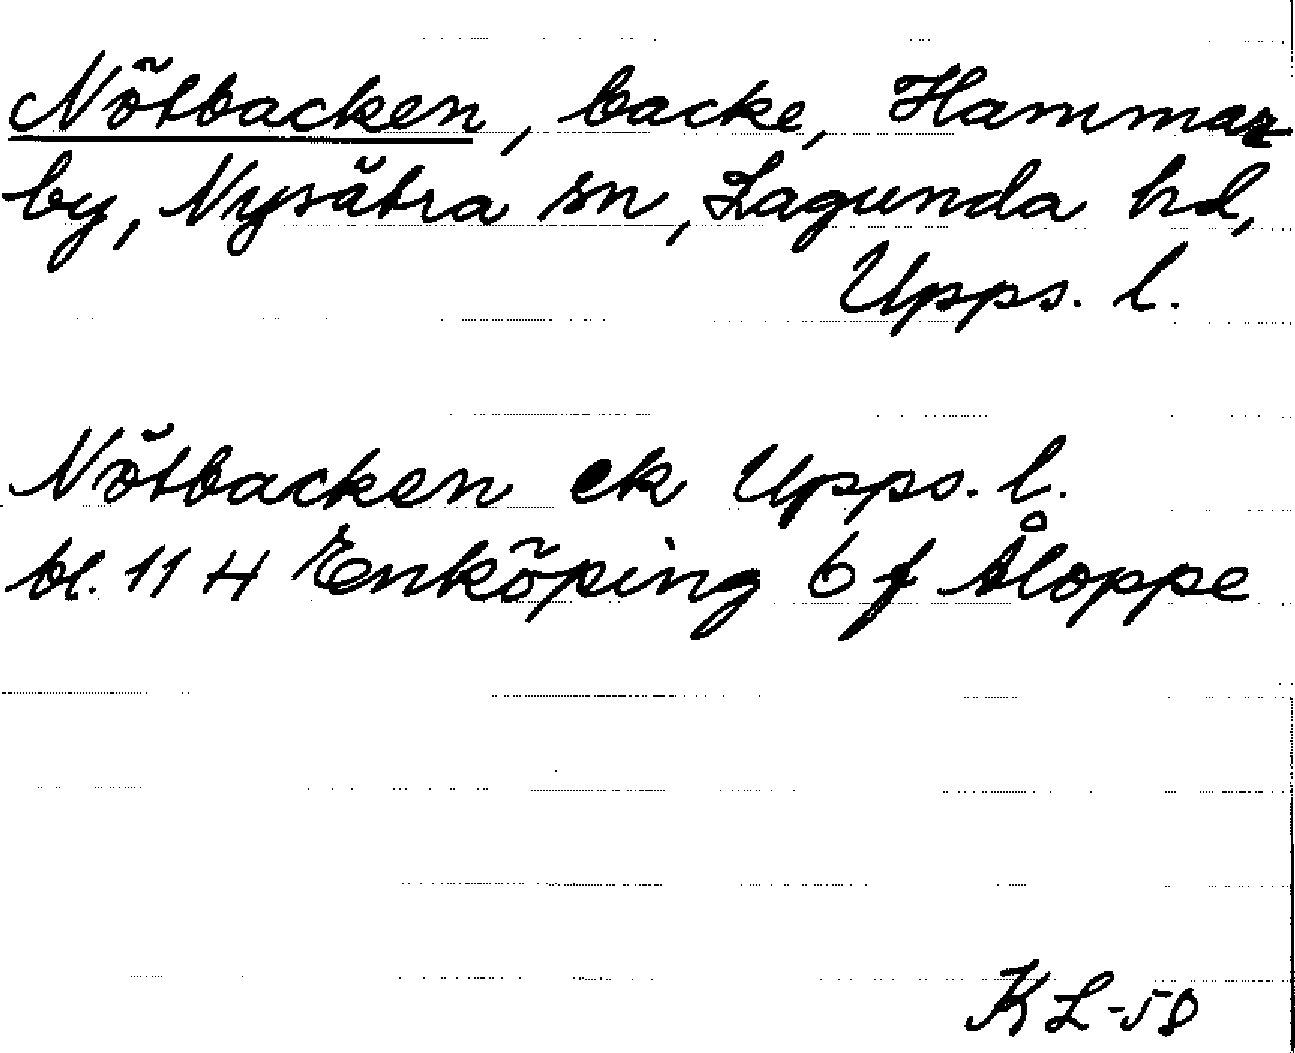 Nötbacken, backe, Hammar
by, Nysätra sn, Lagunda hd,
Upps. l.
Nötbacken ek Upps. l.
bl. 11 H Enköping 6 f Åloppe
KL-58